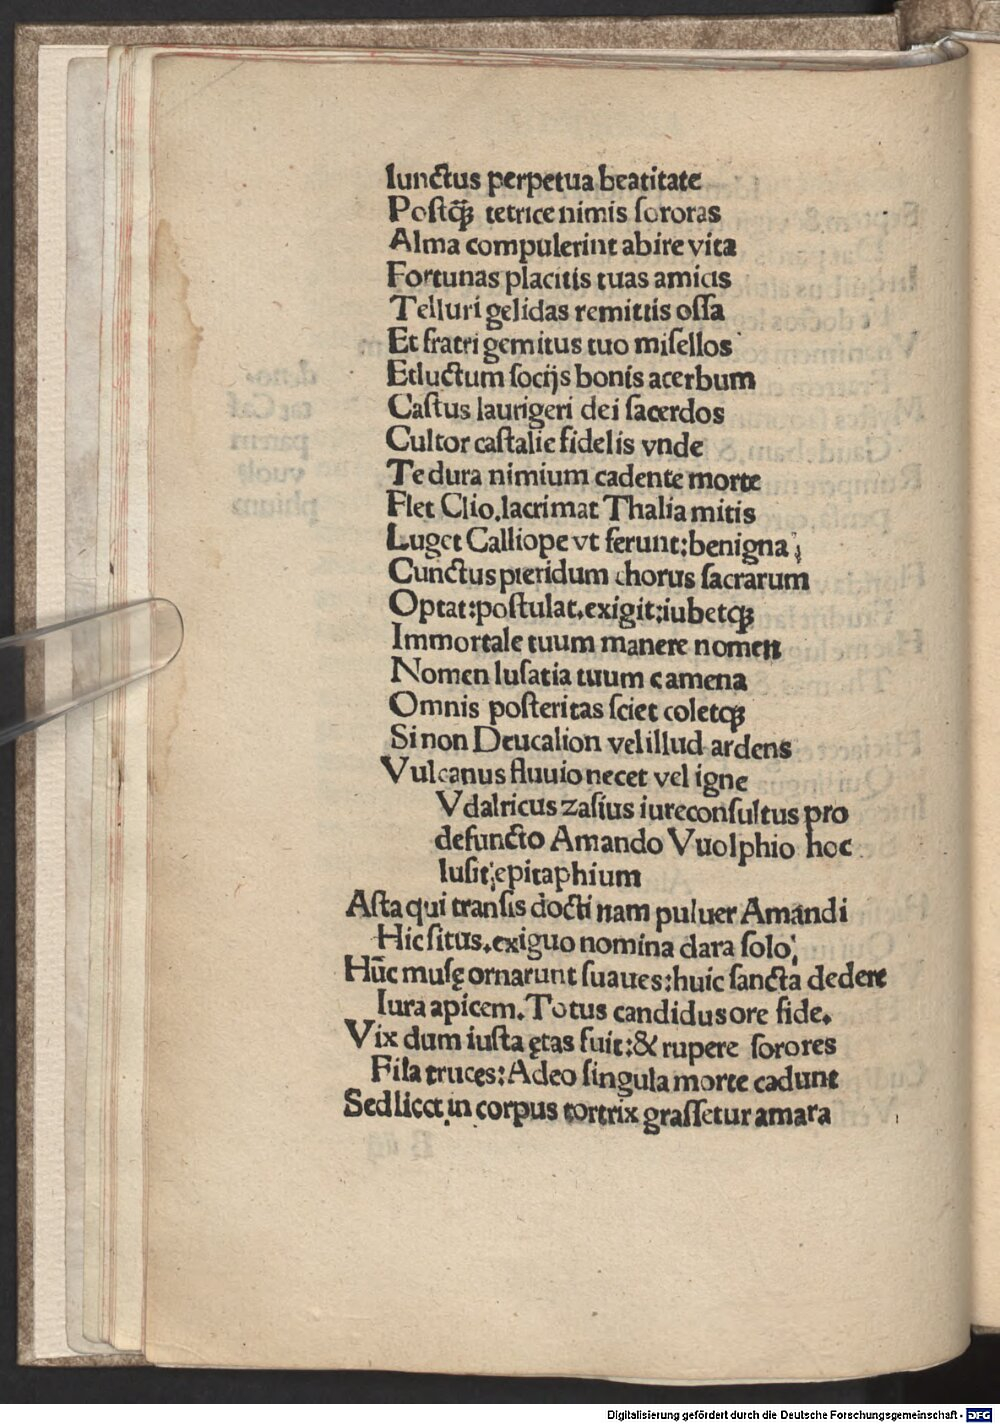 Iunctus perpetua beatitate
Postq̄ꝫ tetrice nimis sororas
Alma compulerint abire vita
Fortunas placitis tuas amicis
Telluri gelidas remittis ossa
Et fratri gemitus tuo misellos
Et luctum socijs bonis acerbum
Castus laurigeri dei sacerdos
Cultor castalie fidelis vnde
Te dura nimium cadente morte
Flet Clio. lacrimat Thalia mitis
Luget Calliope vt ferunt: benigna
Cunctus pieridum chorus sacrarum
Optat: postulat. exigit: iubetqꝫ
Immortale tuum manere nomen
Nomen lusatia tuum camena
Omnis posteritas sciet coletqꝫ
Si non Deucalion vel illud ardens
Vulcanus fluuio necet vel igne
Vdalricus zasius iureconsultus pro
defuncto Amando Vuolphio hoc
lusit epitaphium
Asta qui transis docti nam puluer Amandi
Hic situs. exiguo nomina clara solo
Hūc musę ornarunt suaues: huic sancta dedere
Iura apicem. Totus candidus ore fide.
Vix dum iusta ętas fuit: & rupere sorores
Fila truces: Adeo singula morte cadunt
Sed licet in corpus tortrix grassetur amara
Digitalisierung gefördert durch die Deutsche Forschungsgemeinschaft - DFG